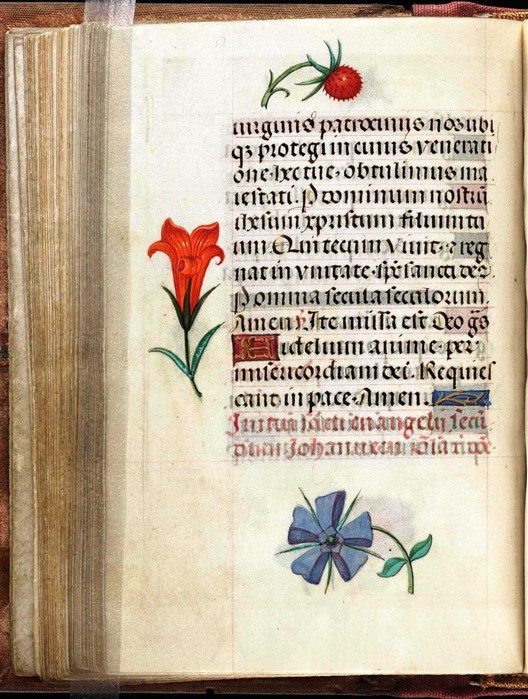 virginis patrocinijs nos ubi
qȝ protegi in cuius venerati
one hec tue obtulimus ma
iestati. P dominum nostrū
ihesum xpristum filium tu
um Qui tecum viuit ⁊ reg
nat in vnitate spūs sancti deꝰ
P omnia secula seculorum.
Amen. Ite missa est Deo gr̄s
Fidelium anime per
misericordiam dei. Requies
cant in pace. Amen.
Initiū sancti euangelij secū
dum Johannem